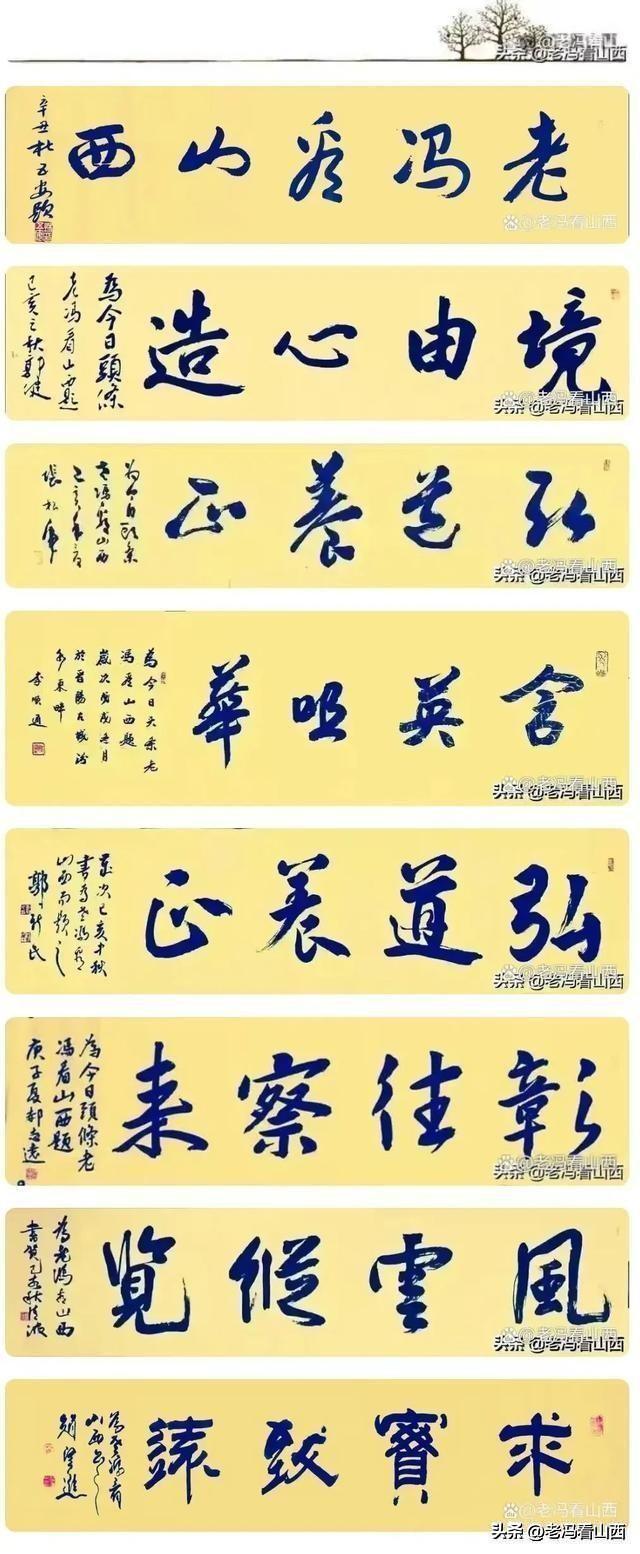 头条 @老冯看山西
老冯看山西
辛丑杜五安题
@老冯看山西
境由心造
為今日頭條
老冯看山西题
己亥之秋郭健
头条 @老冯看山西
弘道養正
为今日头条
老冯看山西
头条 @老冯看山西
含英咀華
為今日头条老
冯看山西題
歲次戊戌冬月
於晋陽古城汾
水東畔
李顺通
头条 @老冯看山西
弘道养正
歲次己亥中秋
書为老冯看
山西而题之
郭新民
头条 @老冯看山西
彰往察来
為今日頭條老
冯看山西題
庚子夏郝
头条 @老冯看山西
風雲縱覽
為老冯看山西
头条 @老冯看山西
求寶致遠
為老冯看
山西
趙望進
头条 @老冯看山西